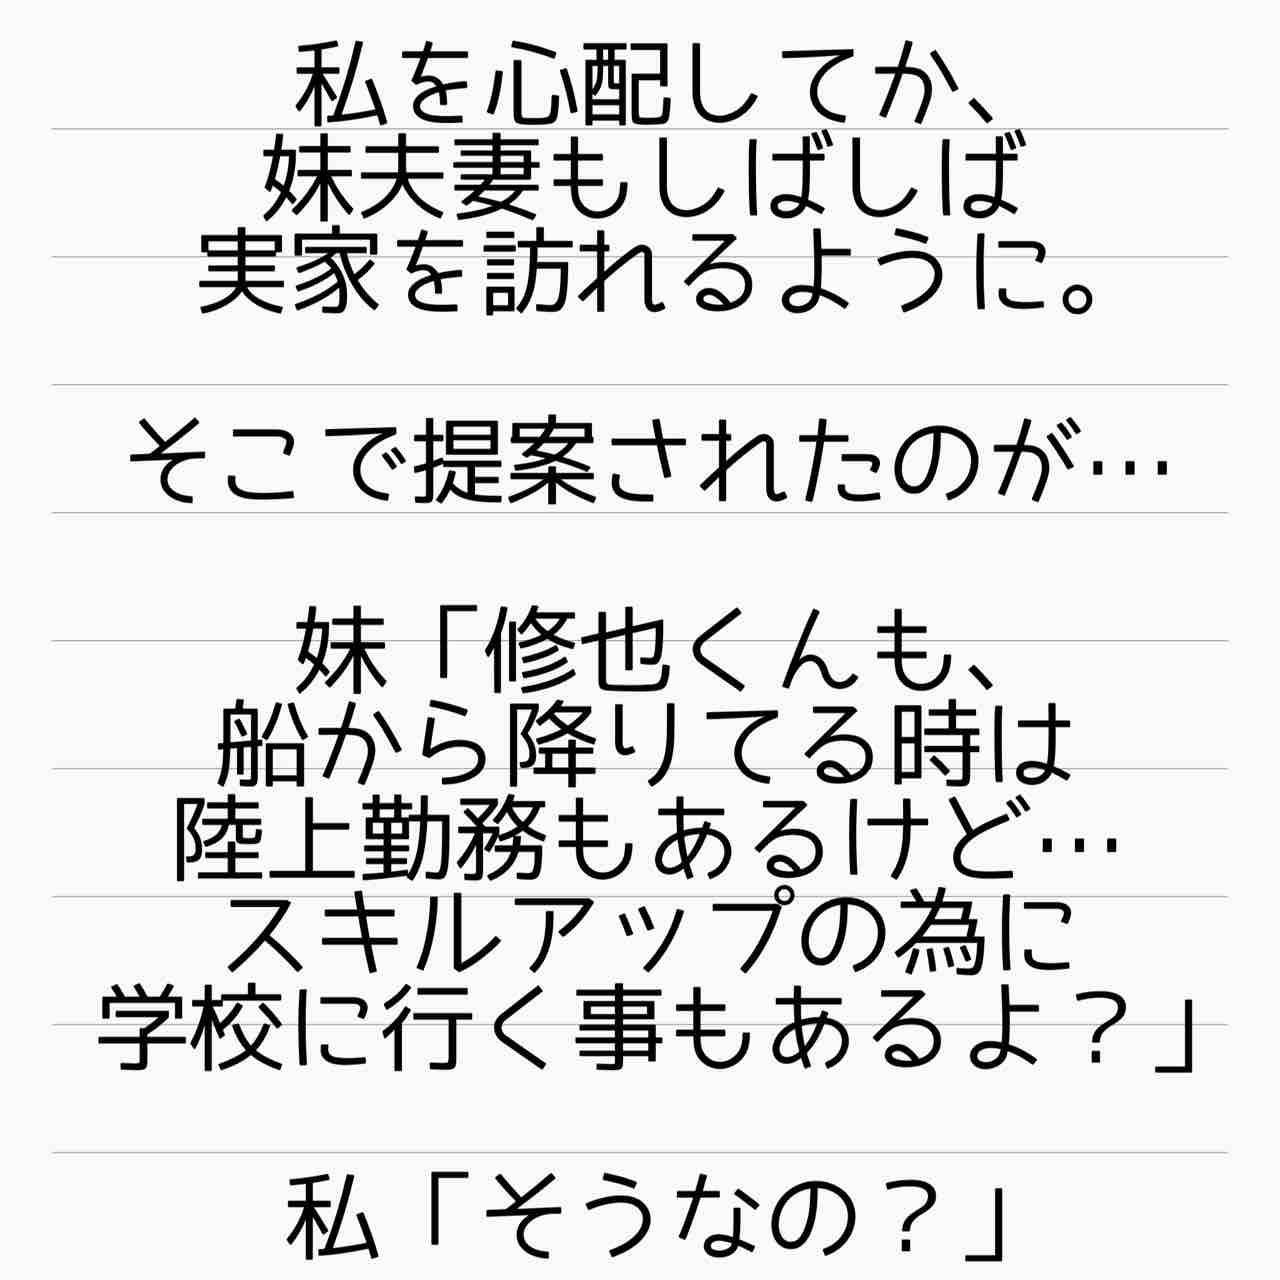 私を心配してか、
妹夫妻もしばしば
実家を訪れるように。
そこで提案されたのが…
妹「修也くんも、
船から降りてる時は
陸上勤務もあるけど…
スキルアップの為に
学校に行く事もあるよ？」
私「そうなの？」